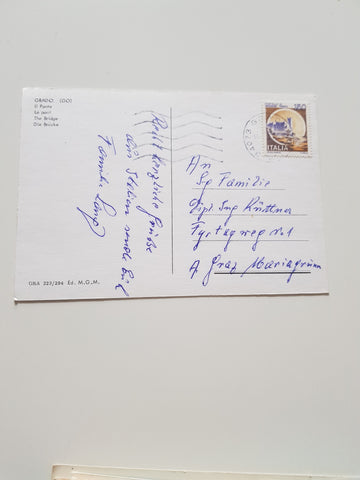 GRADO (GO)
Il Ponte
Le pont
The Bridge
Die Brücke
Recht herzliche Grüsse
aus Italien sendet Euch
Familie
ITALIA
An
Sp Familie
Dipl Ing Küttner
Tyrtagweg No 1
A Graz Mariagrün
GRA 223/294 Ed. M.G.M.